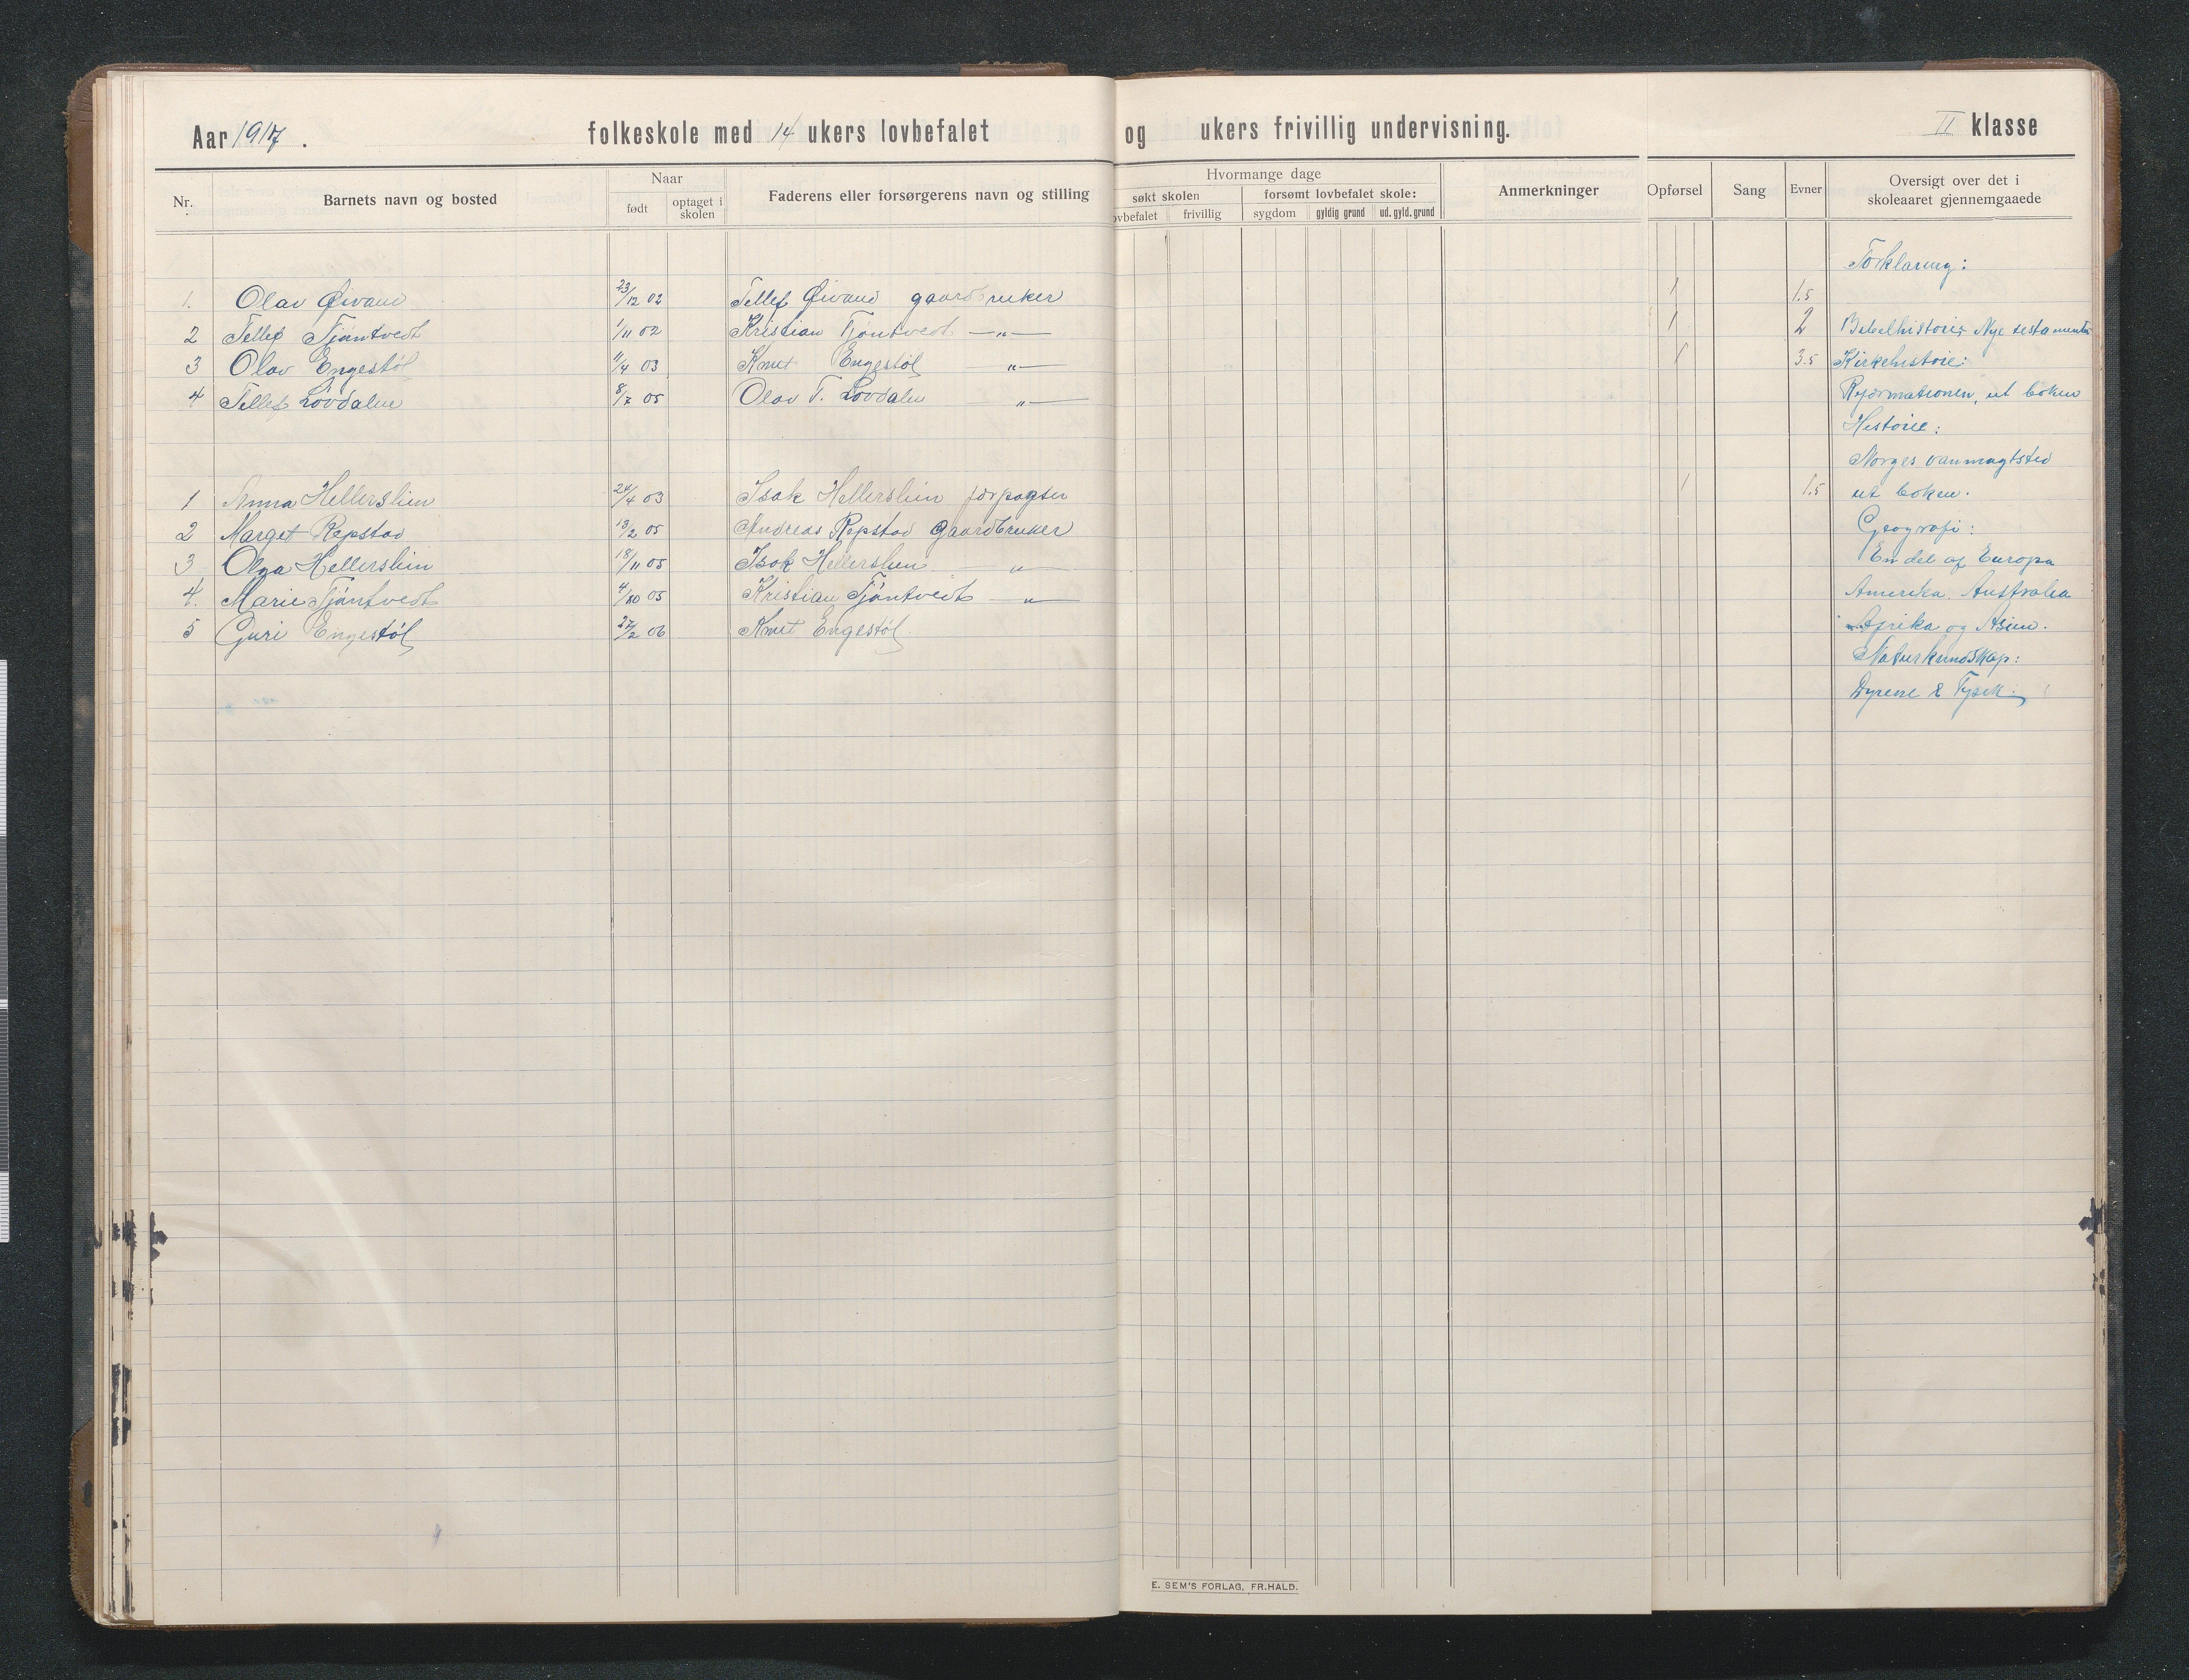 Aar 1917. folkeskole med 14 ukers lovbefalet og ukers frivillig undervisning. II klasse
Nr. Barnets navn og bosted Naar født optaget i skolen Faderens eller forsørgerens navn og stilling Hvormange dage søkt skolen ovbefalet frivillig forsømt lovbefalet skole: sygdom gyldig grund ud. gyld. grund Anmerkninger Opførsel Sang Evner Oversigt over det i skoleaaret gjennemgaaede
Forklaring:
1. Olav Øivand 23/12 02 Tellef Øivand gaardbruker 1 1.5
2 Tellef Tjøntvedt 1/11 02 Kristian Tjøntvedt —„— 1 2 Bibelhistorie Nye testamente
3 Olav Engestøl 11/4 03 Knut Engestøl „— 1 3.5 Kirkehistorie:
4 Tellef Løvdalen 8/7 05 Olav T. Løvdalen „— Reformationen, ut boken
Historie:
Norges vanmagtstid
1 Anna Hellerslien 24/4 03 Isak Hellerslien forpagter 1 1.5 ut boken.
2 Marget Repstad 13/2 05 Andreas Repstad Gaardbruker Geografi:
3 Olga Hellerslien 18/11 05 Isak Hellerslien —„— En del af Europa
4. Marie Tjøntvedt 4/10 05 Kristian Tjøntvedt —„— Amerika. Australia
5 Guri Engestøl 27/2 06 Knut Engestøl Afrika og Asien.
Naturkundskap:
Dyrene & Fysik.
E. SEM'S FORLAG, FR.HALD.